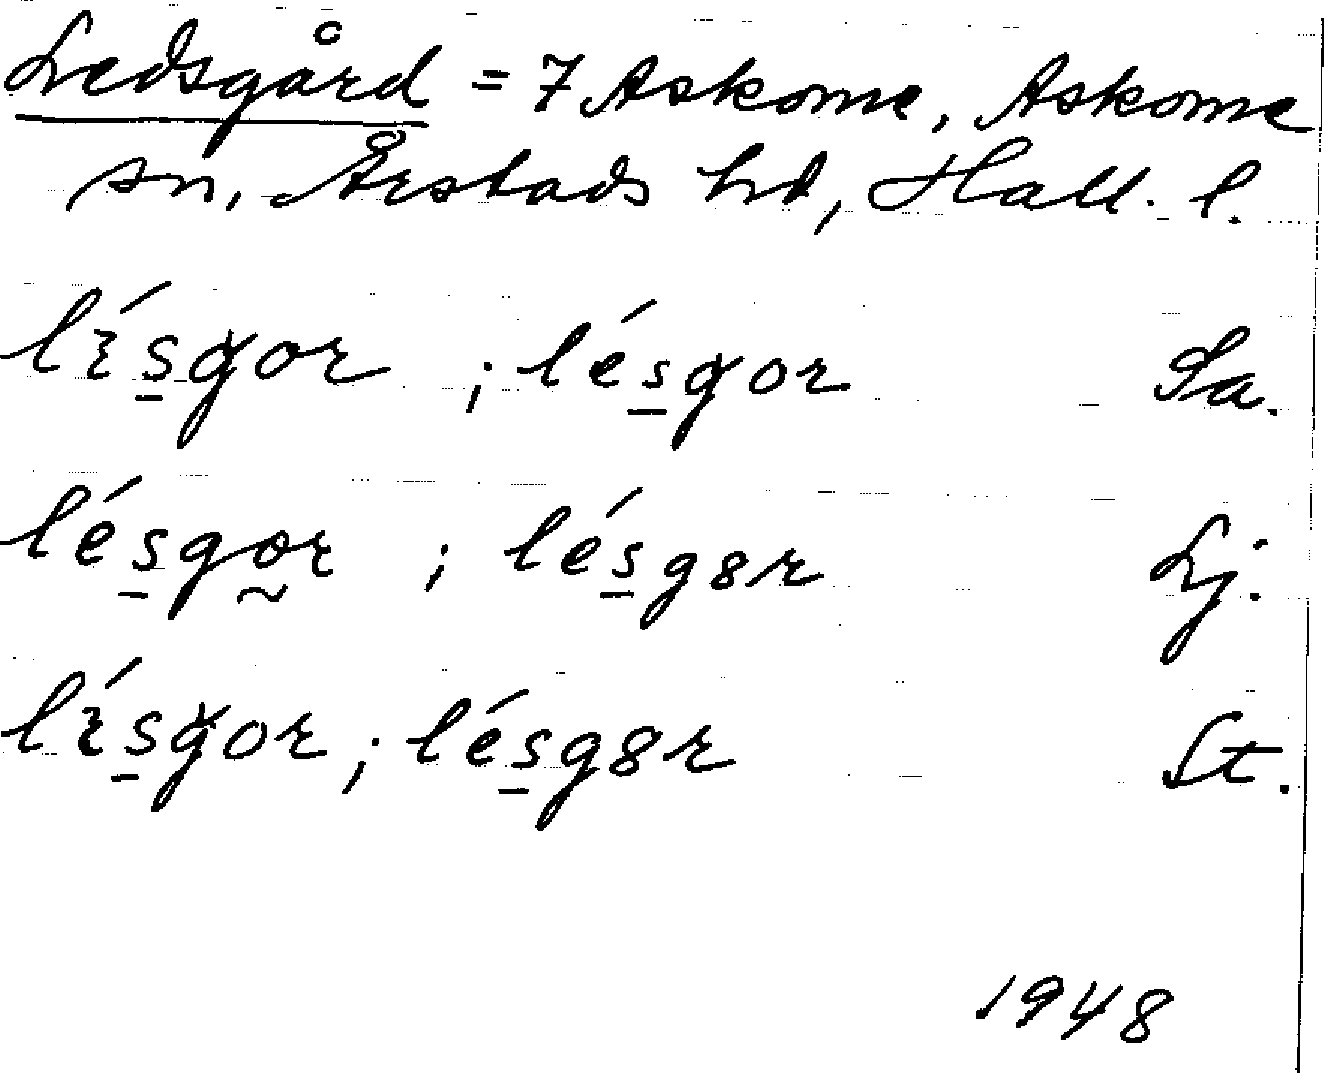 Ledsgård = 7 Askome, Askome
sn, Årstads hd, Hall. l.
lésgor ; lésgor Sa.
lésgor ; lésg8r Lj.
lésgor ; lésg8r St.
1948